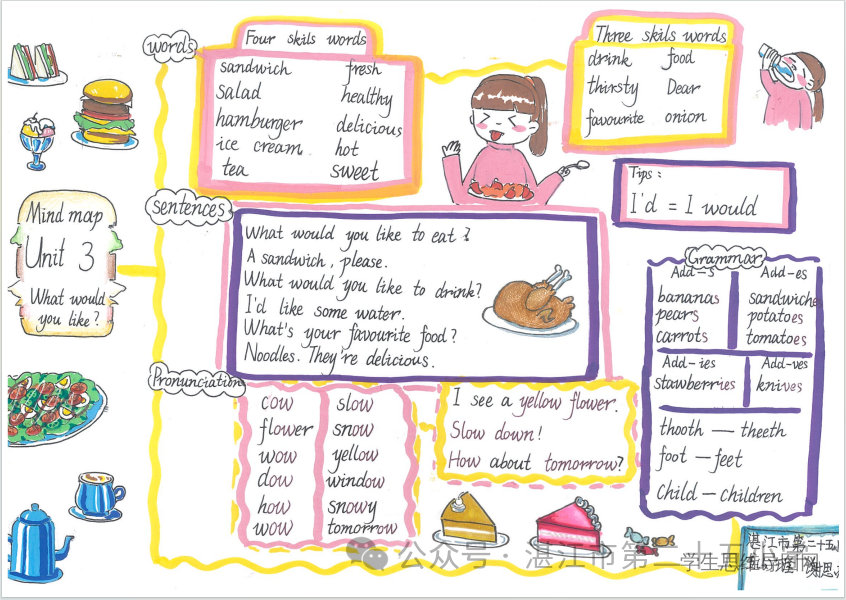 words
Four skils words
sandwich fresh
salad healthy
hamburger delicious
ice cream hot
tea sweet
Three skils words
drink food
thirsty Dear
favourite onion
Tips :
I'd = I would
Mind map
Unit 3
What would
you like ?
sentences
What would you like to eat ?
A sandwich, please.
What would you like to drink?
I'd like some water.
What's your favourite food ?
Noodles. They're delicious.
Grammar
Add-s Add-es
bananas sandwiches
pears potatoes
carrots tomatoes
Add-ies Add-ves
stawberries knives
thooth — theeth
foot — feet
child — children
Pronunciation
cow slow
flower snow
wow yellow
dow window
how snowy
wow tomorrow
I see a yellow flower.
Slow down!
How about tomorrow?
湛江市第二十五
公众号 · 湛江市第二十五
学生思维导图网